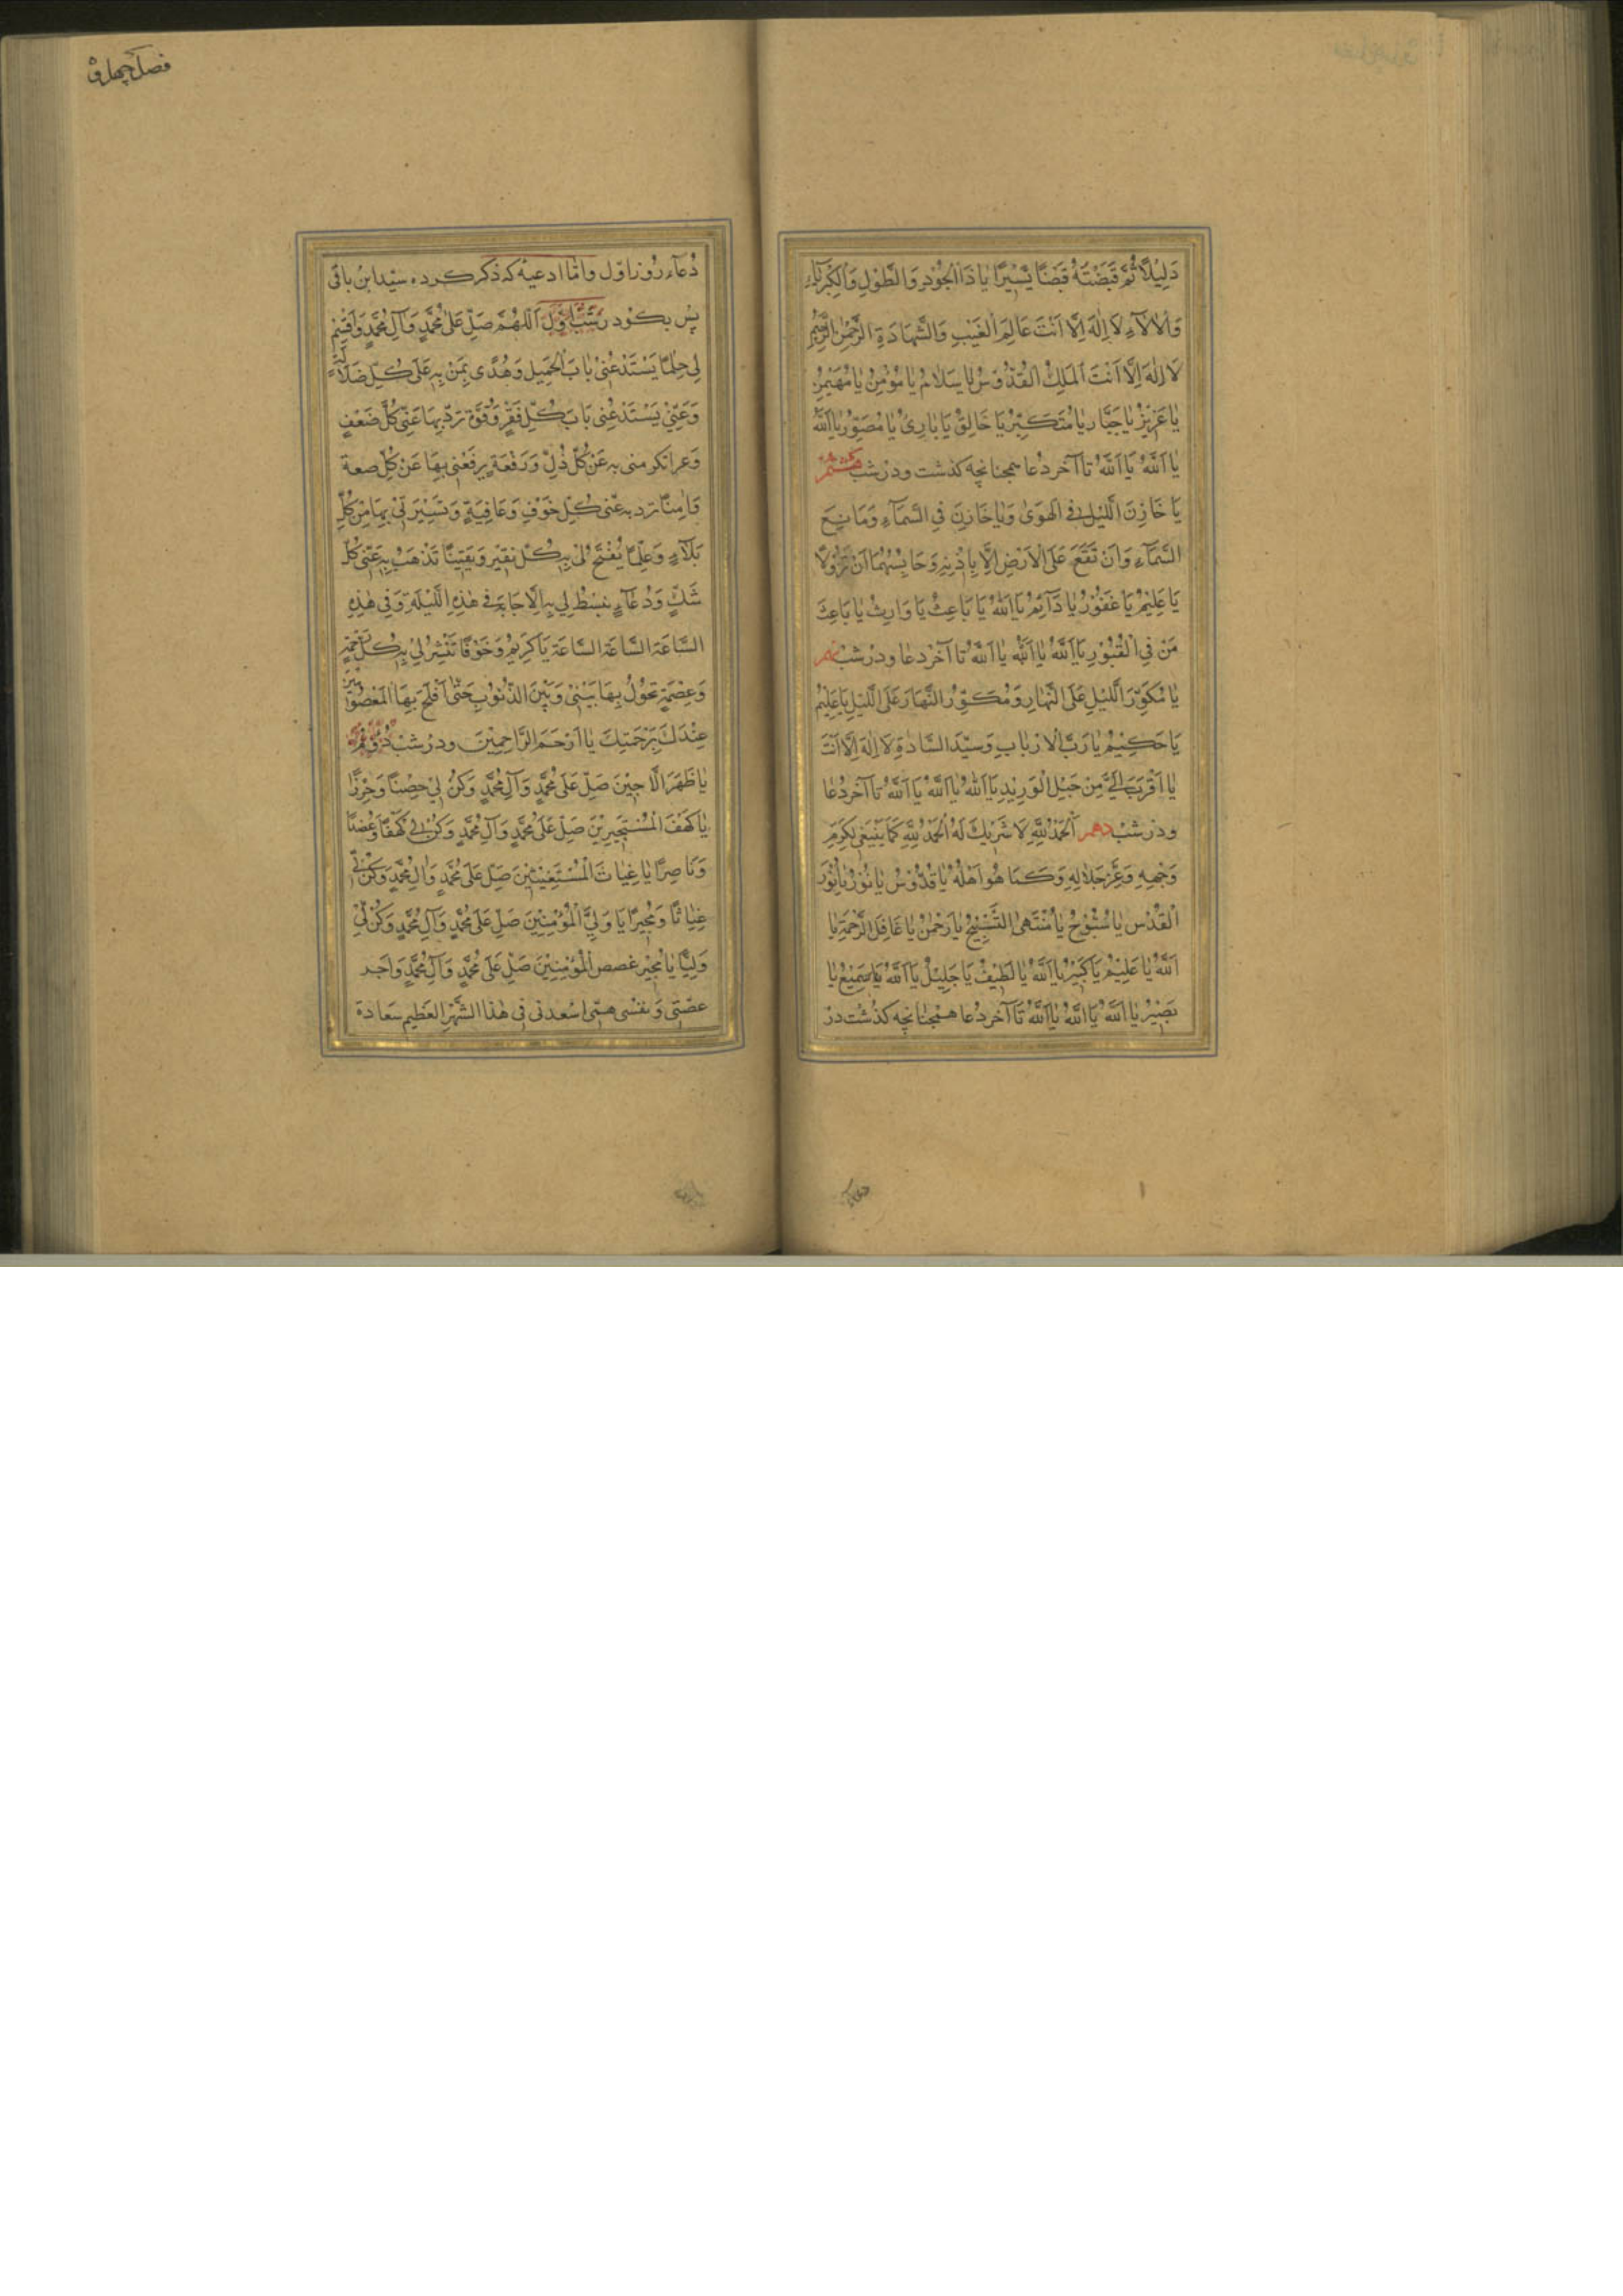 دَلِيْلاً ثُمَّ قَبَضْتَهُ قَبْضًا يَّسِيْرًا يَا ذَا الْجُوْدِ وَ الطَّوْلِ وَالْكِبْرِيَاءِ
وَالْاٰلَآءِ لَا اِلٰهَ اِلَّا اَنْتَ عَالِمَ الْغَيْبِ وَالشَّهَادَةِ الرَّحْمٰنُ الرَّحِيْمُ
لَا اِلٰهَ اِلَّا اَنْتَ الْمَلِكُ الْقُدُّوْسُ يَا سَلَامُ يَا مُؤْمِنُ يَا مُهَيْمِنُ
يَا عَزِيْزُ يَا جَبَّارُ يَا مُتَكَبِّرُ يَا خَالِقُ يَا بَارِئُ يَا مُصَوِّرُ يَا اَللّٰهُ
يَا اَللّٰهُ يَا اَللّٰهُ تا آخر دُعا همچنانچه كذشت ودر شب هشتم
يَا خَازِنَ الَّليْلِ فِى الْهَوىٰ وَيَا خَازِنَ فِى السَّمَآءِ وَمَانِعَ
السَّمَآءِ وَانْ تَقَعَ عَلَى الْاَرْضِ اِلَّا بِاِذْنِهٖ وَحَابِسُهُمَا اَنْ تَزُوْلَا
يَا عَلِيْمُ يَا غَفُوْرُ يَا دَآئِمُ يَا اَللّٰهُ يَا بَاعِثُ يَا وَارِثُ يَا بَاعِثَ
مَنْ فِى الْقُبُوْرِ يَا اَللّٰهُ يَا اَللّٰهُ يَا اَللّٰهُ تا آخر دعا ودر شب نهم
يَا مُكَوِّرَ الَّليْلِ عَلَى النَّهَارِ وَمُكَوِّرُ النَّهَارَ عَلَى الَّليْلِ يَا عَلِيْمُ
يَا حَكِيْمُ يَا رَبَّ الْاَرْبَابِ وَسَيِّدَ السَّادَةِ لَا اِلٰهَ اِلَّا اَنْتَ
يَا اَقْرَبَ اِلَيَّ مِنْ حَبْلِ الْوَرِيْدِ يَا اَللّٰهُ يَا اَللّٰهُ يَا اَللّٰهُ تا آخر دُعا
ودر شب دهم اَلْحَمْدُ لِلّٰهِ لَا شَرِيْكَ لَهُ الْحَمْدُ لِلّٰهِ كَمَا يَنْبَغِىْ لِكَرَمِ
وَجْهِهٖ وَعِزِّ جَلَالِهٖ وَكَمَا هُوَ اَهْلُهُ يَا قُدُّوْسُ يَا نُوْرُ يَا نُوْرَ
الْقُدْسِ يَا سُبُّوْحُ يَا مُنْتَهَى التَّسْبِيْحِ يَا رَحْمٰنُ يَا غَافِلَ الرَّحْمَةِ يَا
اَللّٰهُ يَا عَلِيْمُ يَا كَبِيْرُ يَا اَللّٰهُ يَا لَطِيْفُ يَا جَلِيْلُ يَا اَللّٰهُ يَا سَمِيْعُ يَا
بَصِيْرُ يَا اَللّٰهُ يَا اَللّٰهُ يَا اَللّٰهُ تَا آخر دُعا همچنانچه كذشت در
فصل چهل و
دُعآء روز اوّل واما ادعيه كه ذكر كرده سيد ابن باقى
پس بكود رشب اوّل اَللّٰهُمَّ صَلِّ عَلٰى مُحَمَّدٍ وَآلِ مُحَمَّدٍ وَاقْسِمْ
لِى حِلْمًا يَسْتَدْعُنِىْ بَابَ الْجَمِيلِ وَهُدًى بِمَنْ بِهٖ عَلٰى كُلِّ ضَلَالَةٍ
وَغِنًى يَسْتَدْعُنِى بَابَ كُلِّ فَقْرٍ وَقُوَّةٍ تَرُدُّ بِهَا عَنِّى كُلَّ ضَعْفٍ
وَعِزًا تكرمنى بِهٖ عَنْ كُلِّ ذُلٍّ وَرَفْعَةٍ يَرْفَعُنِى بِهَا عَنْ كُلِّ ضعة
وَاَمِنًا تَرُد بِهٖ عَنّى كُلِّ خَوْفٍ وَعَافِيَةٍ وَتَسْيَرَنِّى بِهَا مِنْ كُلِّ
بَلَآءٍ وَعِلْمًا يُفْتَحُ لِىْ بِهٖ كُلِّ يَقِيْنٍ وَيَقِيْنًا تَذْهَبُ بِهٖ عَنِّى كُلَّ
شَكٍّ وَدُعَآءٍ تَبْسُطُ لِي بِهِ الْاِجَابَةِ فِى هٰذِهِ الَّليْلَةِ وَفِى هٰذِهِ
السَّاعَة السَّاعَة السَّاعَة يَا كَرِيمُ وَخَوْفًا تَنْشِرُ لِىْ بِهٖ كُلِّ رَحْمَةٍ
وَعِصْمَةٍ تَحُوْلُ بِهَا بَيْنِىْ وَبَيْنَ الذُّنُوْبِ حَتّٰى اَفْلَحَ بِهَا الْمَعْصُوْمِيْنَ
عِنْدَكَ بِرَحْمَتِكَ يَا اَرْحَمَ الرَّاحِمِيْنَ ودر شب دُوّم
يَا ظَهَرَ الَّاجِيْنَ صَلِّ عَلٰى مُحَمَّدٍ وَآلِ مُحَمَّدٍ وَكُنْ لِىْ حِصْنًا وَحِرْزًا
يَا كَهْفَ الْمُسْتَجِيْرِيْنَ صَلِّ عَلٰى مُحَمَّدٍ وَآلِ مُحَمَّدٍ وَكُنْ لِى كَهْفًا وَعُضْدًا
وَنَاصِرًا يَا غِيَاثَ الْمُسْتَغِيْثِيْنَ صَلِّ عَلٰى مُحَمَّدٍ وَاٰلِ مُحَمَّدٍ وَكُنْ لِّى
غِيَاثًا وَمُجِيْرًا يَا وَلِيَّ الْمُؤْمِنِيْنَ صَلِّ عَلٰى مُحَمَّدٍ وَآلِ مُحَمَّدٍ وَكُنْ لِّىْ
وَلِيًّا يَا مُجِيْرَ غصص الْمُؤْمِنِيْنَ صَلِّ عَلٰى مُحَمَّدٍ وَآلِ مُحَمَّدٍ وَاجر
غصّتى وَنفسْ همّى اسْعدنى فى هٰذَا الشَّهْرِ الْعَظِيمِ سَعَادة